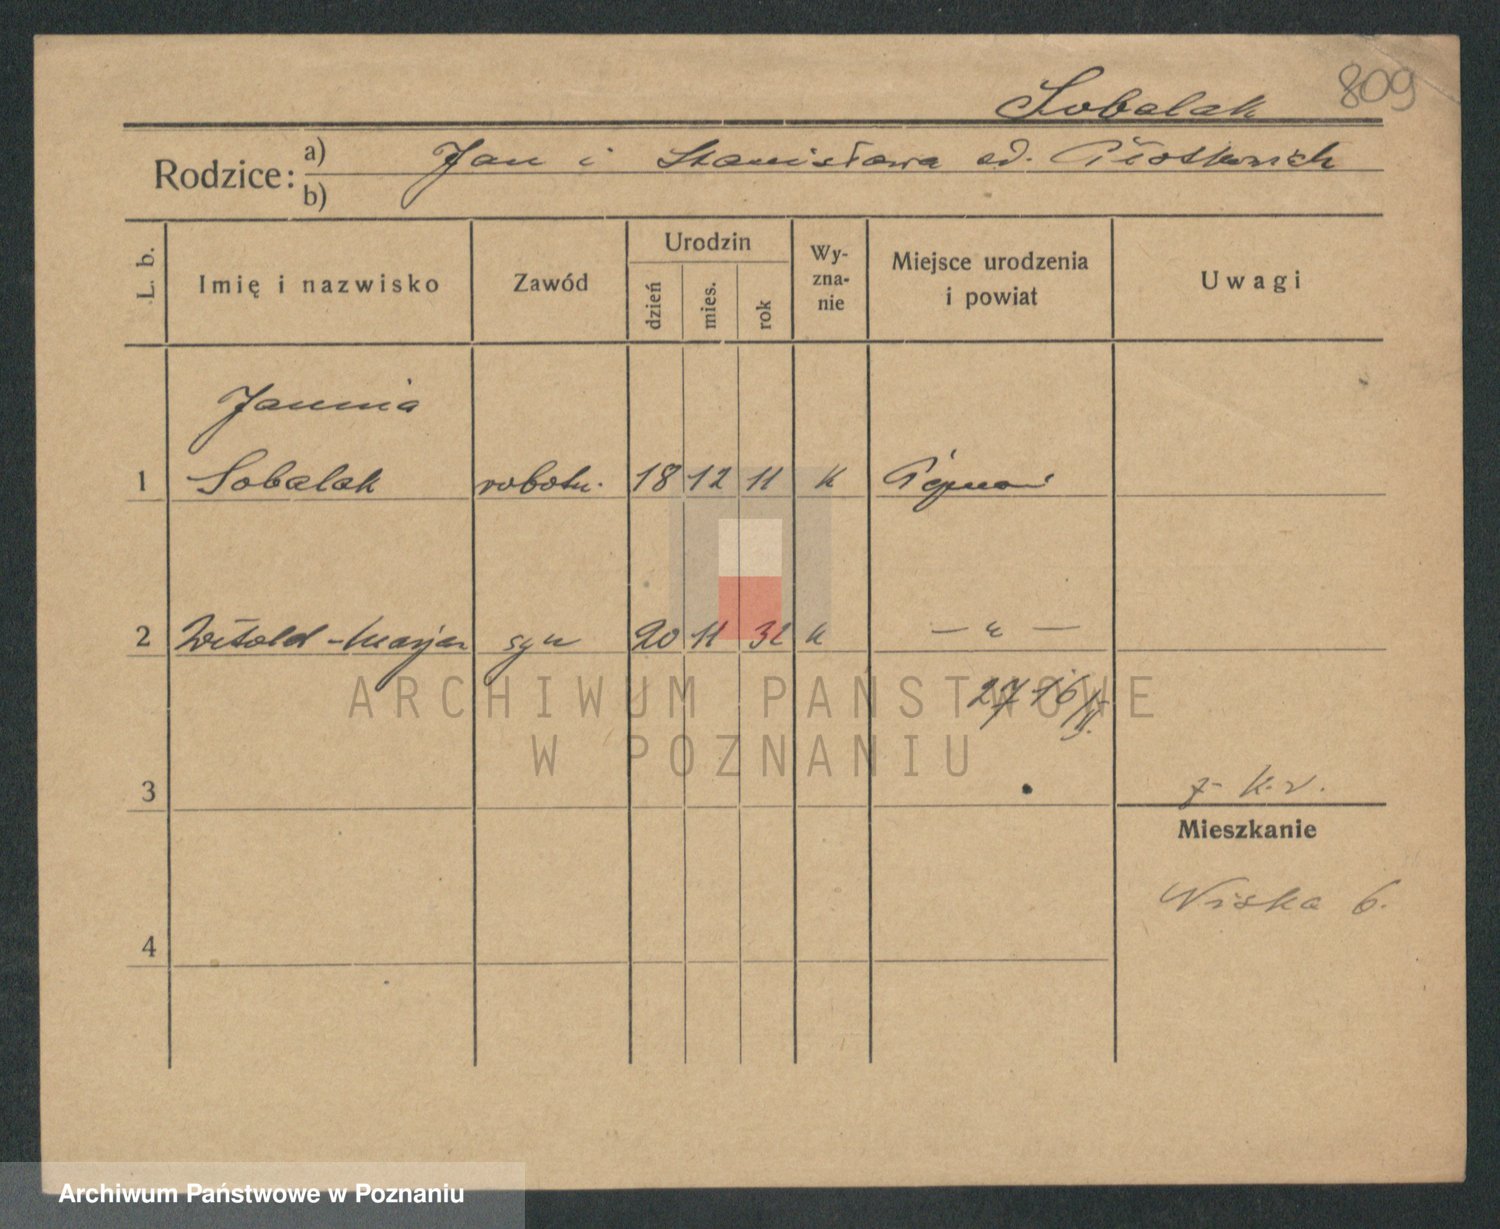 809
Sobalak
Rodzice: a) Jan i Stanisława
b)
L. b. Imię i nazwisko Zawód Urodzin dzień mies. rok Wy-zna-nie Miejsce urodzenia i powiat Uwagi
Janina
1 Sobalak robotn. 18 12 11 k
2 Witold-Marjan syn 20 11 32 k — " —
27 16/
ARCHIWUM PAŃSTWOWE
W POZNANIU
3
z k.v.
Mieszkanie
Niska 6.
4
Archiwum Państwowe w Poznaniu